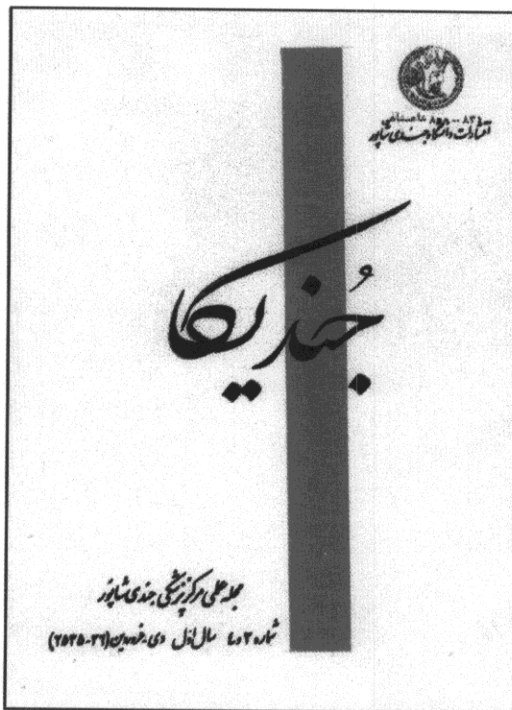 شاهنشاهی
انتشارات دانشگاه جندی شاپور
جُندیکا
مجله علمی مرکز پزشکی جندی شاپور
شماره ۳ و ۴ سال اول دی-فروردین (۳۶-۲۵۳۵)